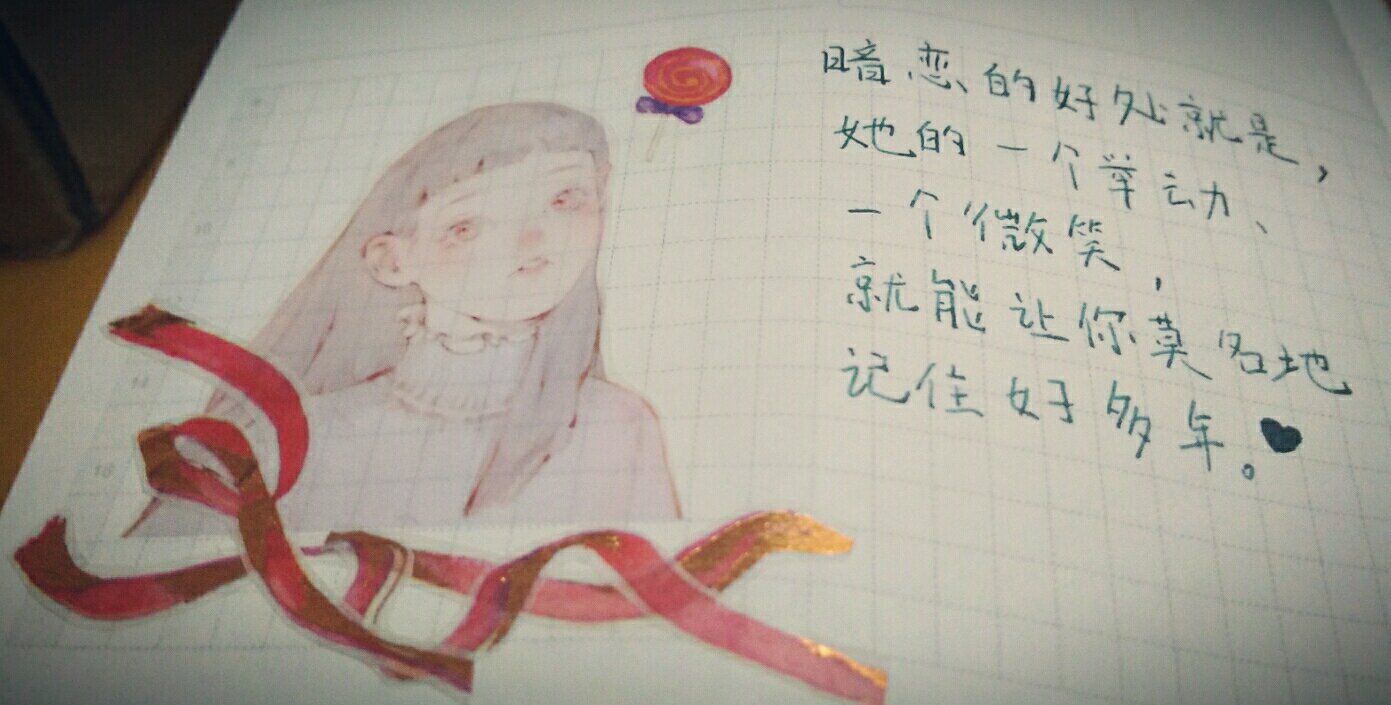 暗恋的好处就是，
她的一个举动、
一个微笑，
就能让你莫名地
记住好多年。